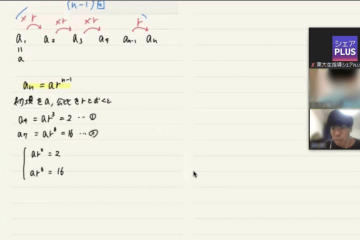 (n-1)回
×r ×r ×r r
a₁ a₂ a₃ a₄ aₙ₋₁ aₙ
॥
a
aₙ = arⁿ⁻¹
初項をa, 公比をrとおくと
a₄ = ar³ = 2 … ①
a₇ = ar⁶ = 16 … ②
ar³ = 2
ar⁶ = 16
シェア
PLUS